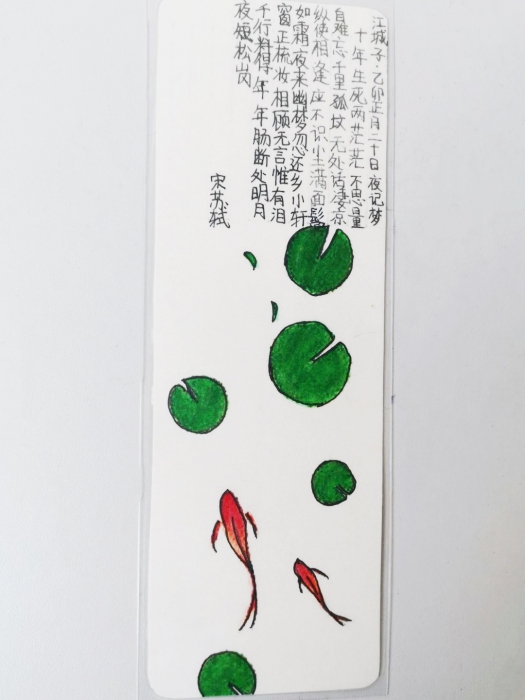 江城子·乙卯正月二十日夜记梦
十年生死两茫茫 不思量
自难忘 千里孤坟 无处话凄凉
纵使相逢座不识 尘满面 鬓
如霜 夜来幽梦忽还乡 小轩
窗 正梳妆 相顾无言惟有泪
千行 料得年年肠断处 明月
夜短松岗
宋苏轼